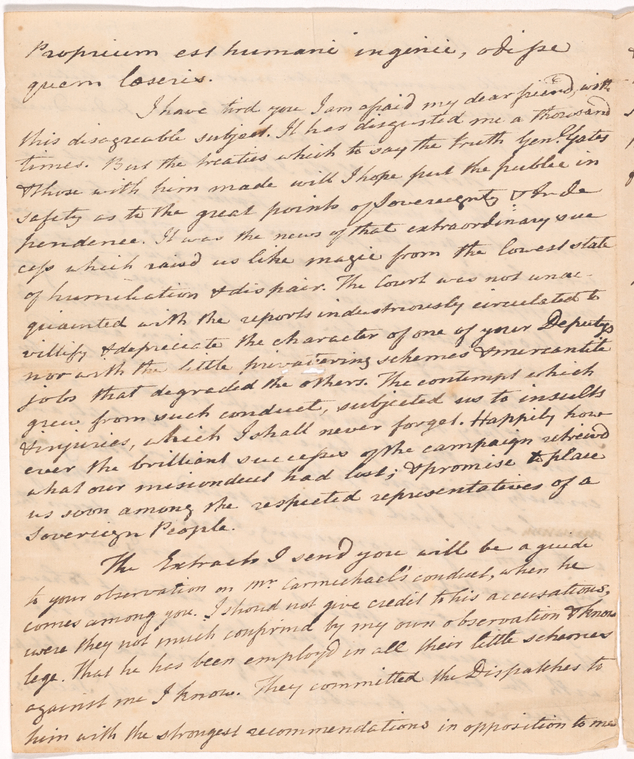 Proprium est humani ingenii, odisse
quem læseris.
I have tird you I am afraid my dear friend, with
this disagreable subject. It has disgusted me a thousand
times. But the treaties which to say the truth Genl. Gates
& those with him made will I hope put the public in
safety as to the great points of Sovereignty & Inde
pendence. It was the news of that extraordinary suc
cess which raisd us like magic from the lowest state
of humiliation & dispair. The Court was not unac-
quainted with the reports industriously circulated to
villify & depreciate the character of one of your Deputys
nor with the little privateering schemes & mercantile
jobs that degraded the others. The contempt which
grew from such conduct, subjected us to insults
& injuries, which I shall never forget. Happily how
ever the brilliant success of the campaign retrievd
what our misconduct had lost; & promise to place
us soon among the respected representatives of a
Sovereign People.
The Extracts I send you will be a guide
to your observation on Mr Carmichael's conduct, when he
comes among you. I should not give credit to his accusations,
were they not much confirmd by my own observation & know
lege. That he has been employd in all their little schemes
against me I know. They committed the Dispatches to
him with the strongest recommendations in opposition to me